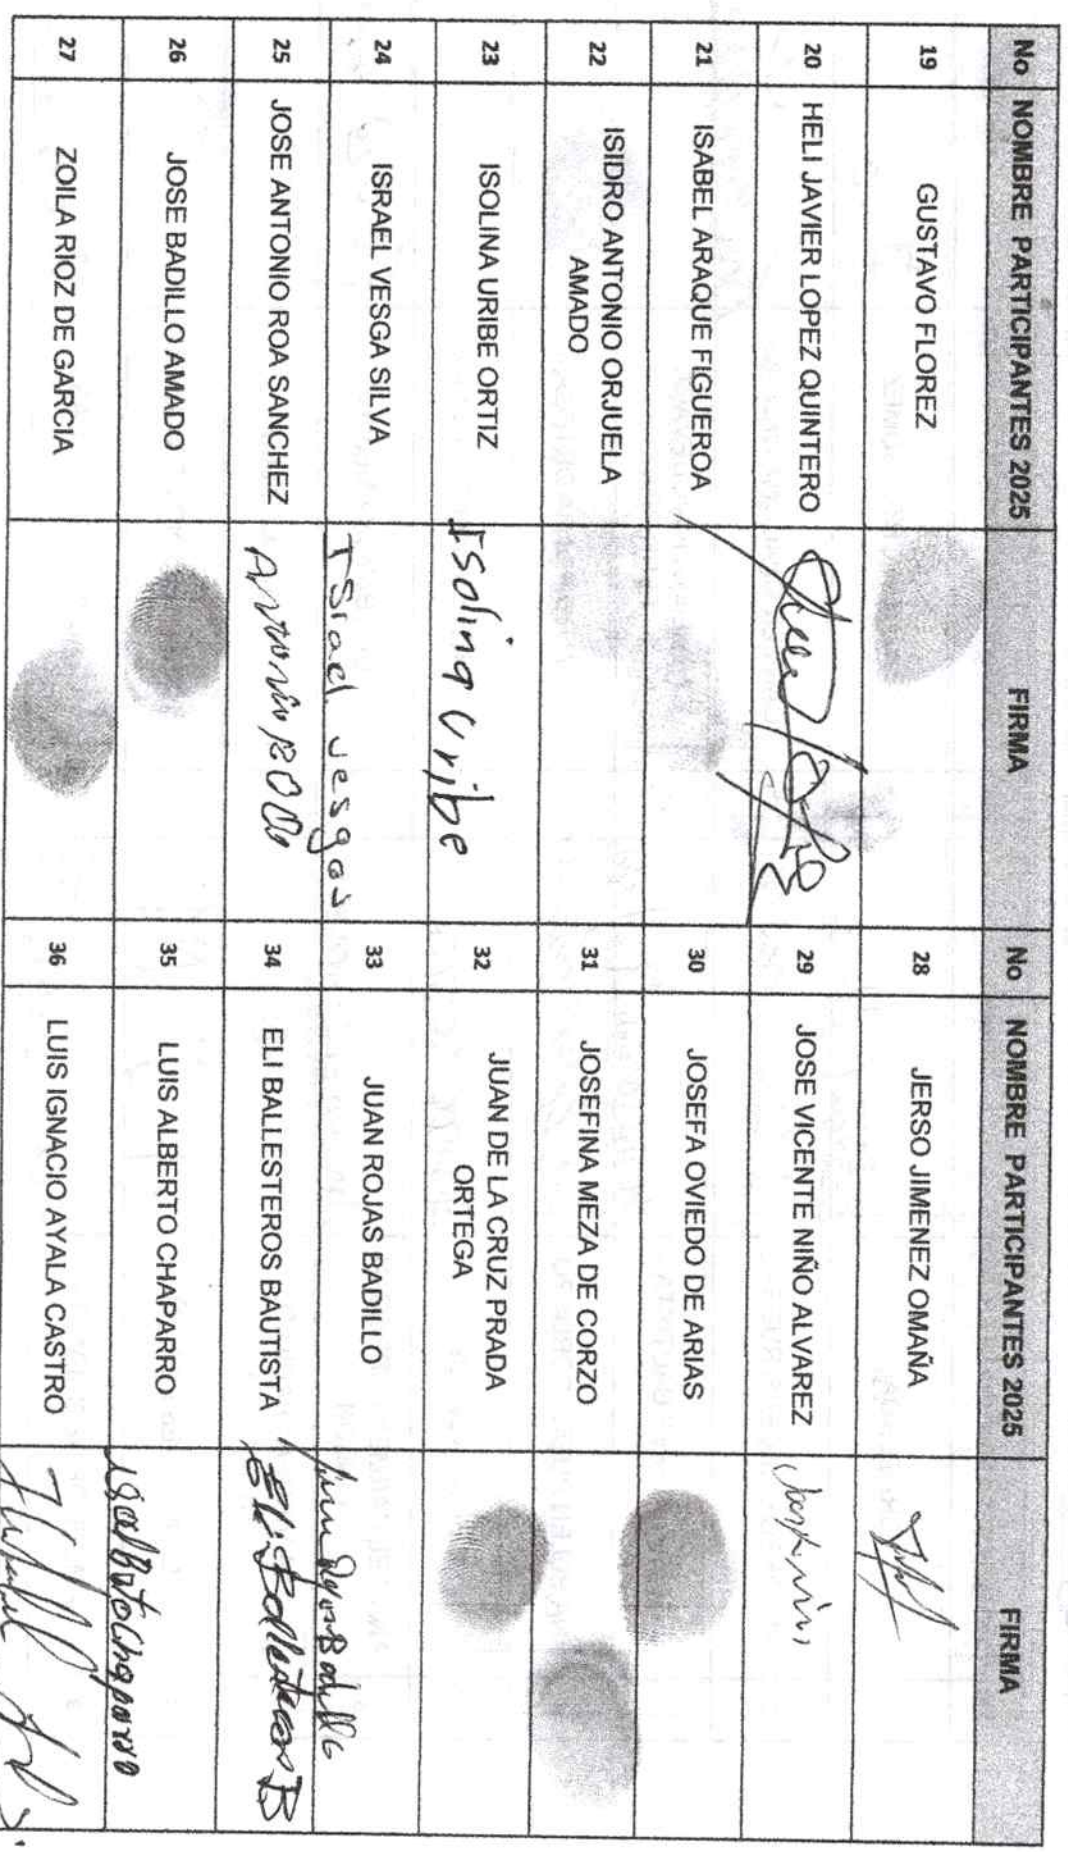 No NOMBRE PARTICIPANTES 2025 FIRMA No NOMBRE PARTICIPANTES 2025 FIRMA
19 GUSTAVO FLOREZ 28 JERSO JIMENEZ OMAÑA
20 HELI JAVIER LOPEZ QUINTERO 29 JOSE VICENTE NIÑO ALVAREZ
21 ISABEL ARAQUE FIGUEROA 30 JOSEFA OVIEDO DE ARIAS
22 ISIDRO ANTONIO ORJUELA
AMADO 31 JOSEFINA MEZA DE CORZO
23 ISOLINA URIBE ORTIZ Isolina Uribe 32 JUAN DE LA CRUZ PRADA
ORTEGA
24 ISRAEL VESGA SILVA Israel vesga s 33 JUAN ROJAS BADILLO
25 JOSE ANTONIO ROA SANCHEZ Antonio Roa 34 ELI BALLESTEROS BAUTISTA Eli Ballesteros B
26 JOSE BADILLO AMADO 35 LUIS ALBERTO CHAPARRO
27 ZOILA RIOZ DE GARCIA 36 LUIS IGNACIO AYALA CASTRO